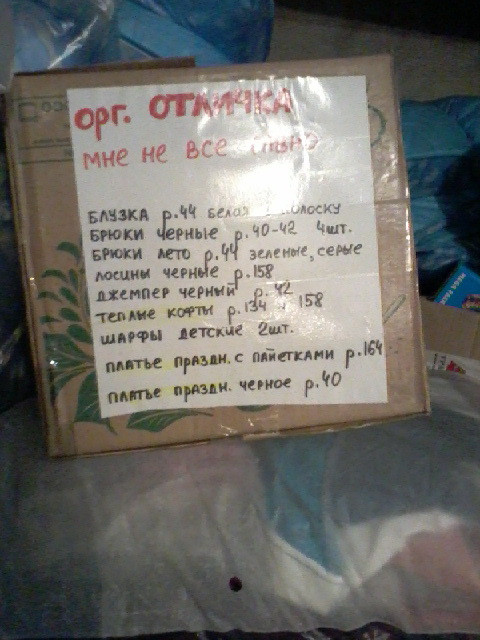 орг. ОТЛИЧКА
мне не все
БЛУЗКА р.44 белая полоску
БРЮКИ черные р.40-42 4шт.
БРЮКИ лето р.44 зеленые, серые
лосины черные р.158
джемпер черный р.42
теплые кофты р.134 и 158
шарфы детские 2шт.
платье праздн. с пайетками р.164
платье праздн. черное р.40